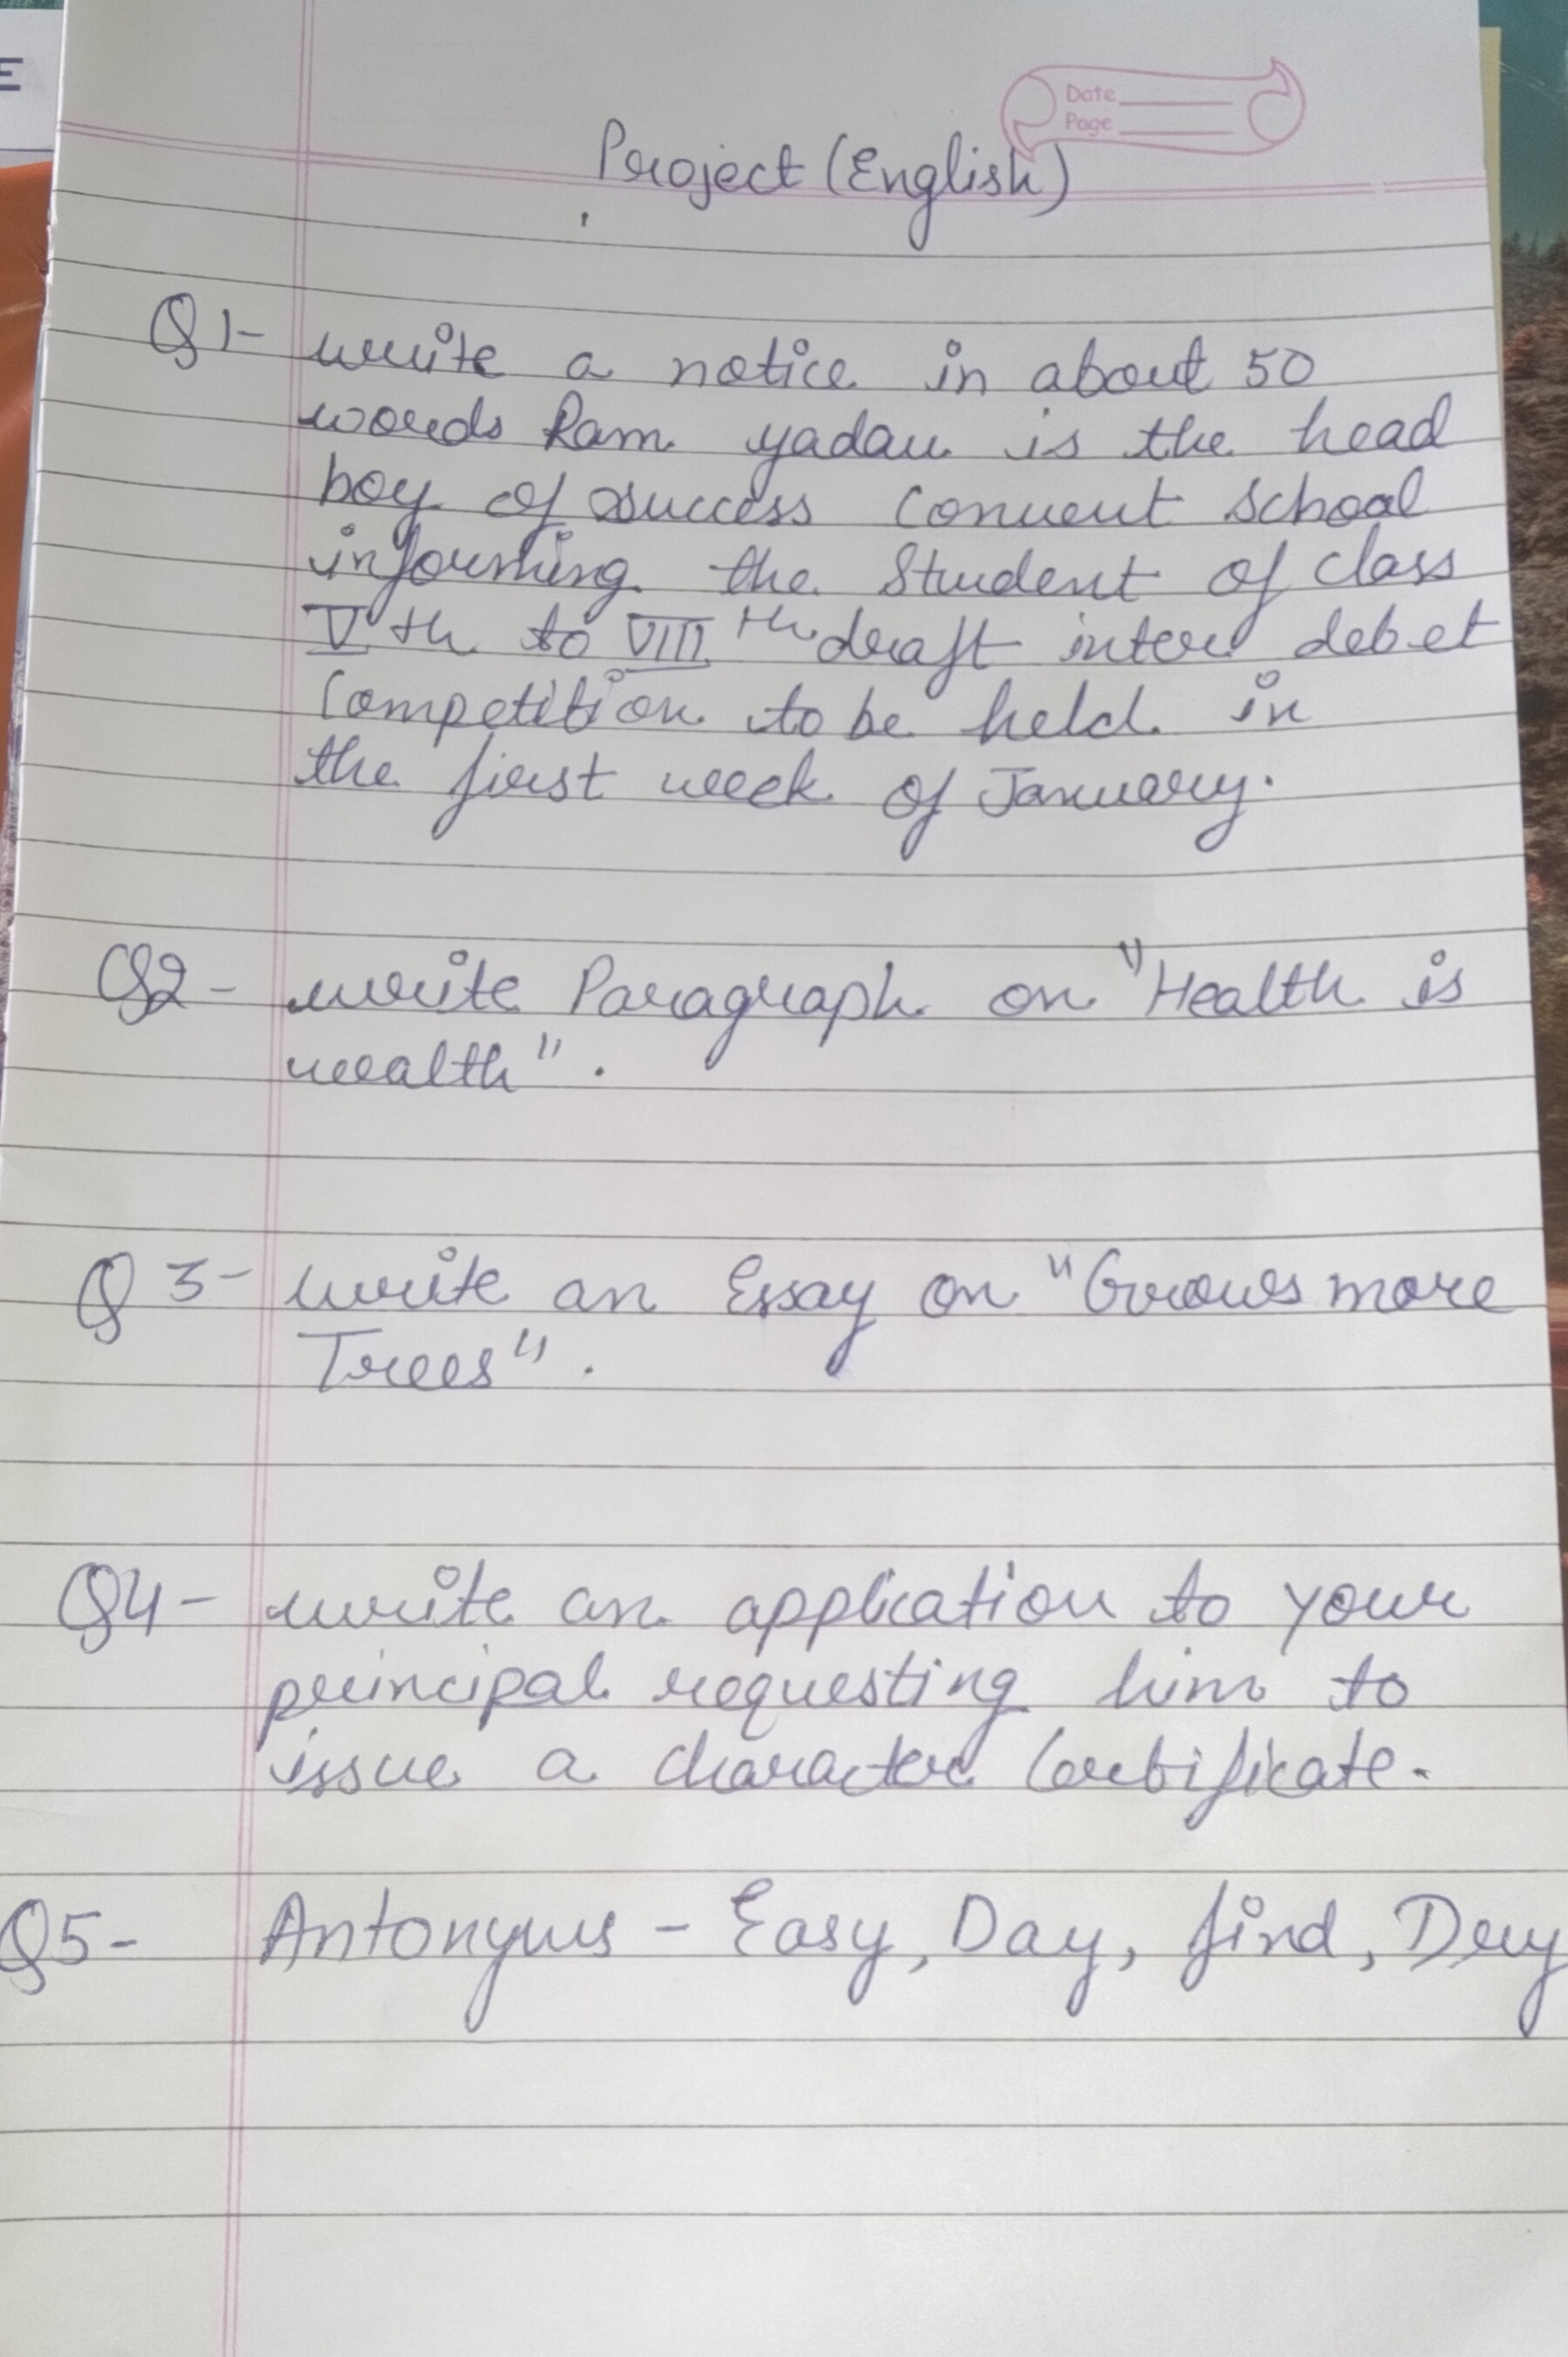 E
Date
Page
Project (English)
Q1- write a notice in about 50
words Ram yadav is the head
boy of success Convent School
informing the Student of class
Vth to VIIIth draft inter debet
Competition to be held in
the first week of January.
Q2- write Paragraph on "Health is
wealth".
Q3- write an Essay on "Grows more
Trees".
Q4- write an application to your
principal requesting him to
issue a character Certificate.
Q5- Antonyms - Easy, Day, find,